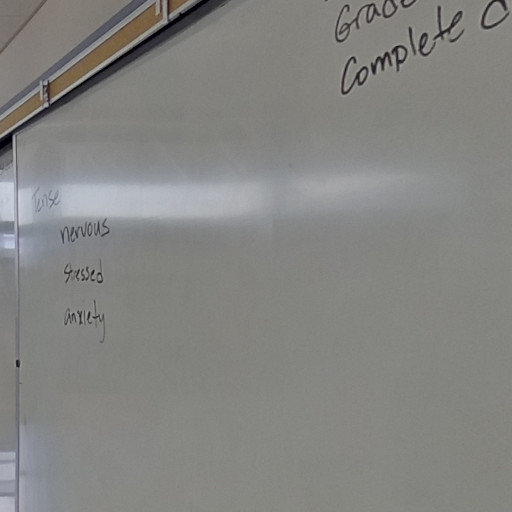 Grade
Complete C
Tense
nervous
stressed
anxiety